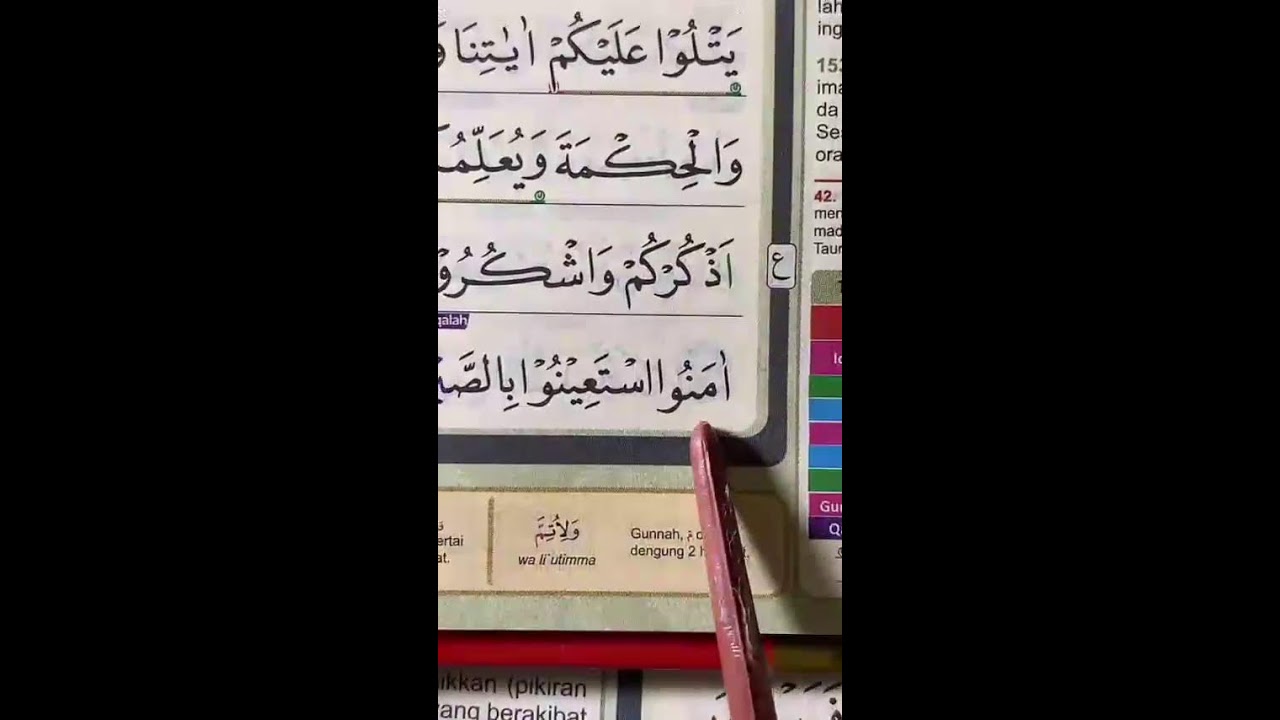 يَتْلُوْا عَلَيْكُمْ اٰيٰتِنَا
وَالْحِكْمَةَ وَيُعَلِّمُ
اَذْكُرْكُمْ وَاشْكُرُوْ
ع
qalah
اٰمَنُوا اسْتَعِيْنُوْا بِالصَّبْ
ertai
at.
وَلِاُتِمَّ
wa li`utimma
Gunnah,
dengung 2
lah
ing
153
ima
da
Se
ora
42.
men
mad
Taur
Id
Gu
Q
ikkan (pikiran
yang berakibat